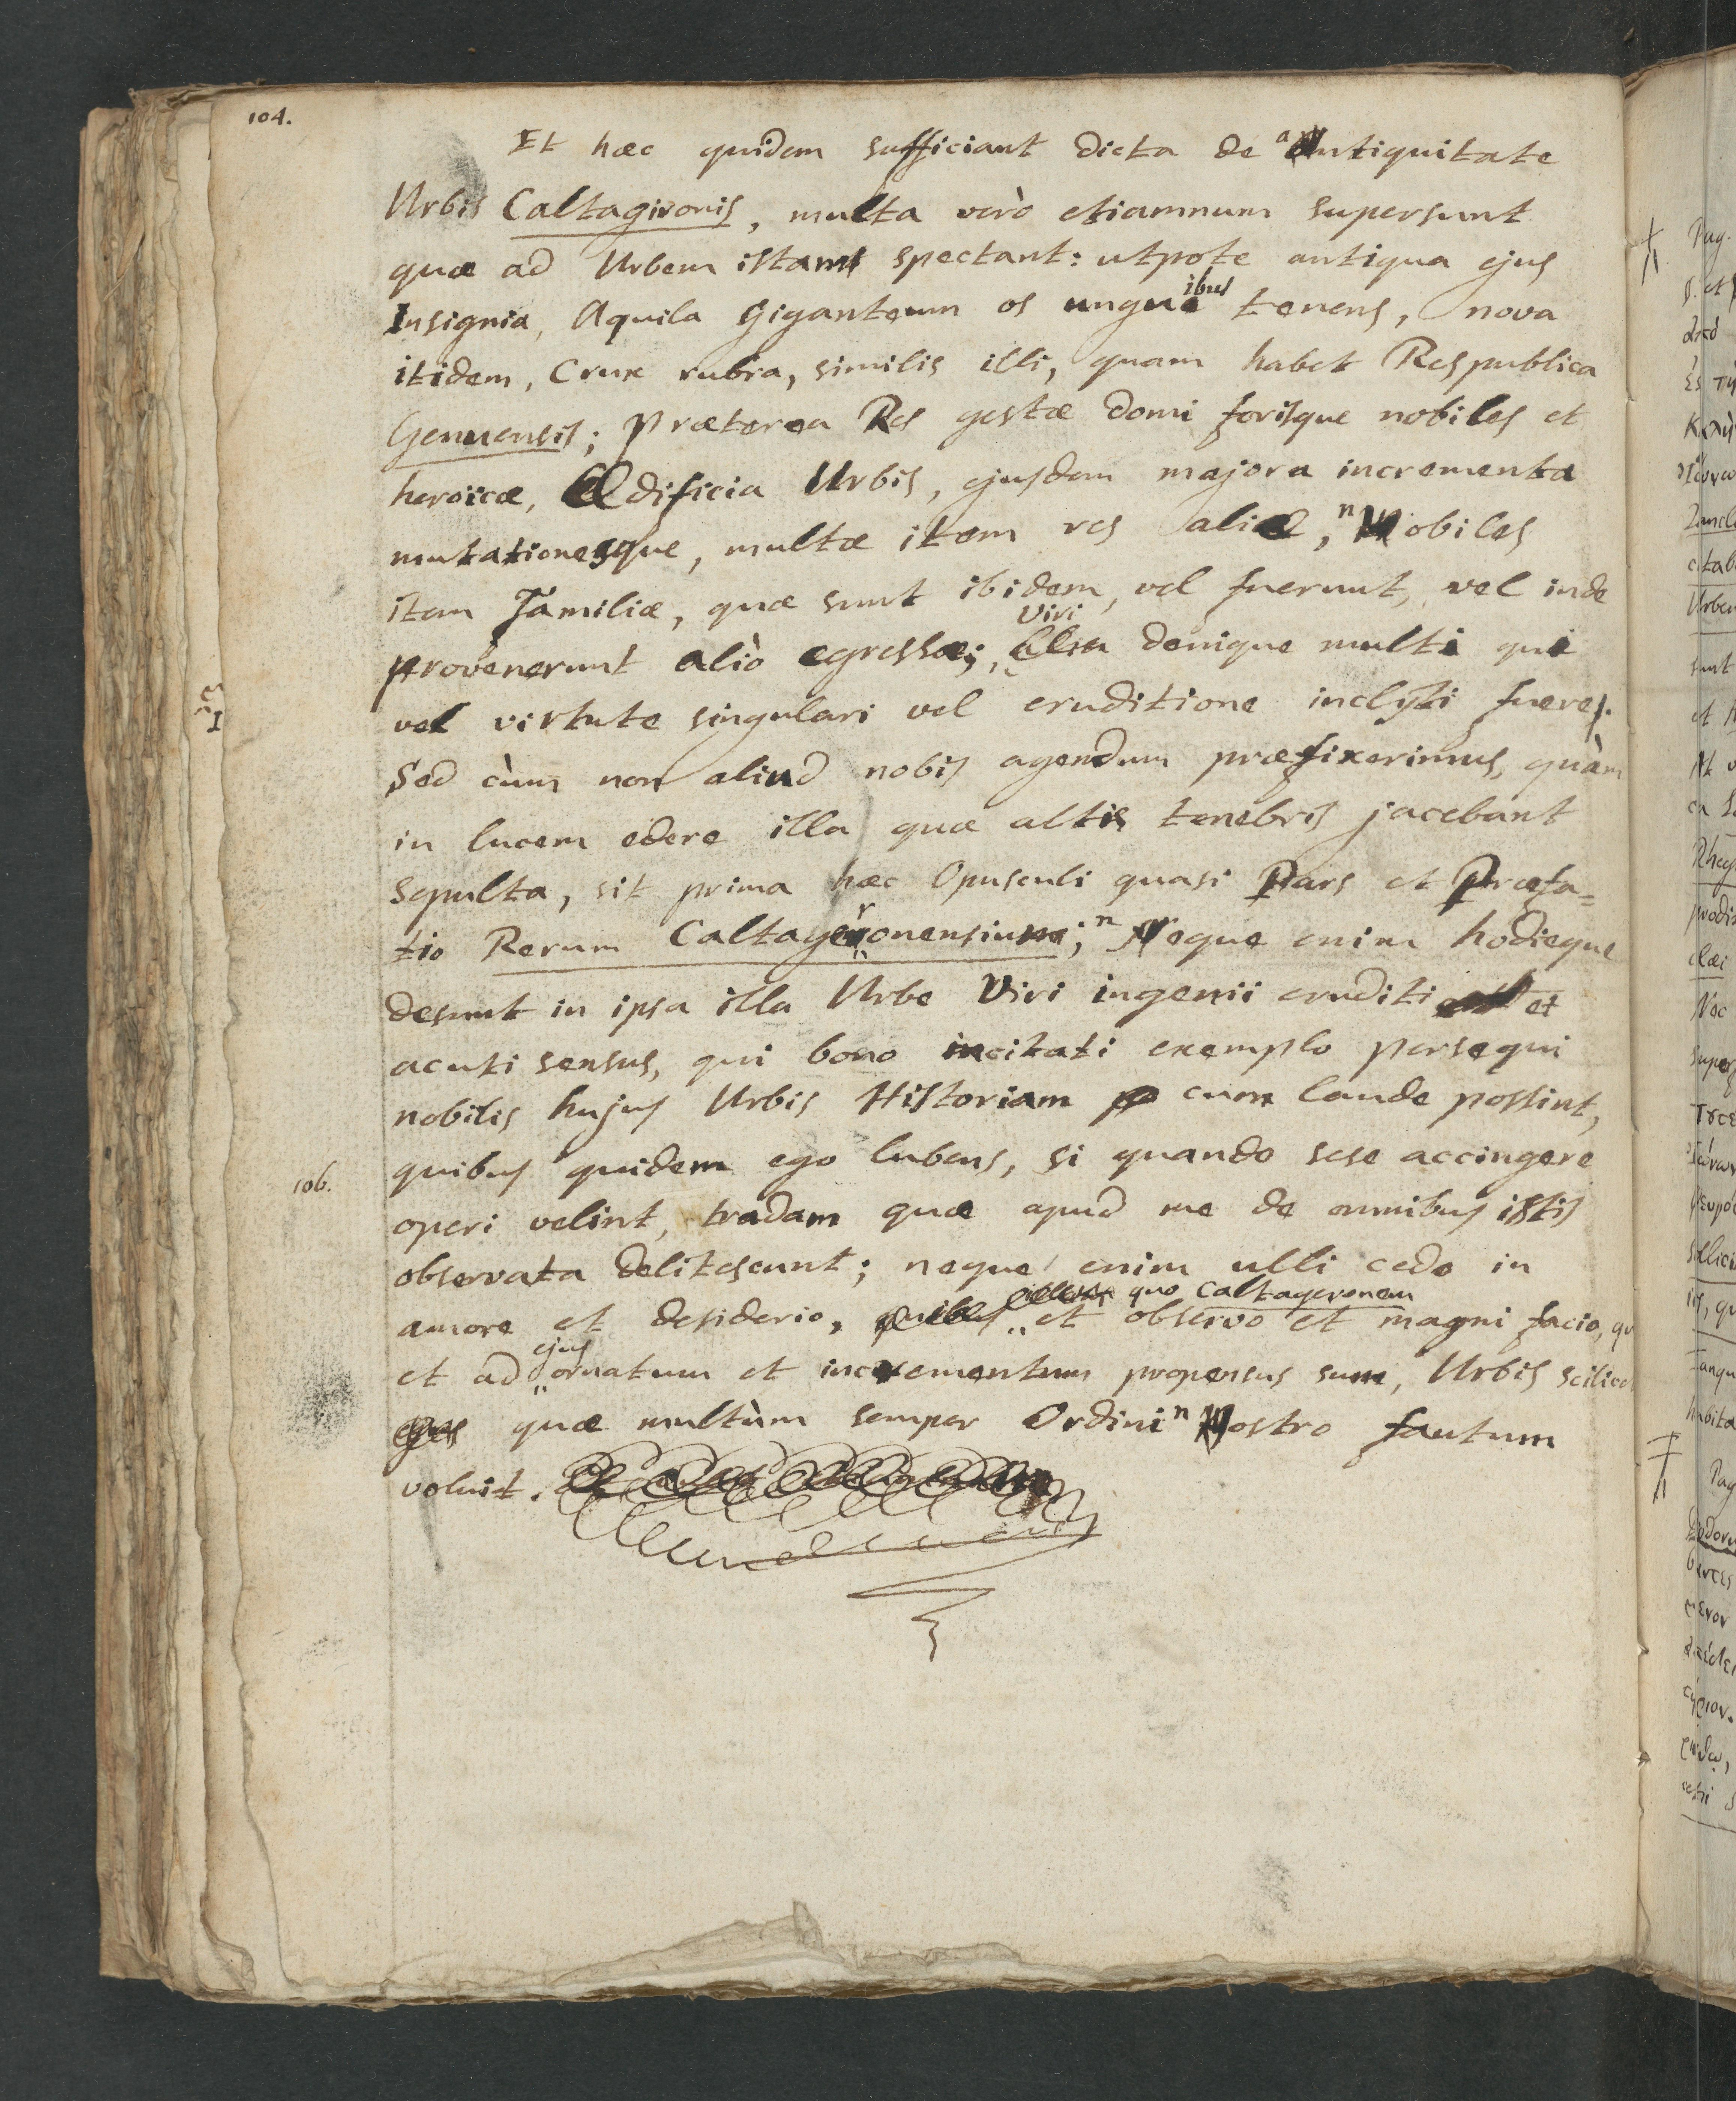 104.
Et hæc quidem sufficiant dicta de antiquitate
Urbis Caltagironis, multa verò etiamnum supersunt
quæ ad Urbem istam spectant: utpote antiqua ejus
Insignia, Aquila Giganteum os unguibus tenens, nova
itidem, Crux rubra, similis illi, quam habet Respublica
Genuensis; Præterea Res gestæ domi forisque nobiles et
heroicæ, Ædificia Urbis, ejusdem majora incrementa
mutationesque, multæ item res aliæ, nobiles
item Familiæ, quæ sunt ibidem, vel fuerunt, vel inde
provenerunt aliò egressæ; Viri denique multi qui
vel virtute singulari vel eruditione inclyti fuere.
Sed cùm non aliud nobis agendum præfixerimus, quàm
in lucem edere illa quæ altis tenebris jacebant
sepulta, sit prima hæc Opusculi quasi Pars et Præfa=
tio Rerum Caltageronensium; neque enim hodieque
desunt in ipsa illa Urbe Viri ingenii eruditi et
acuti sensus, qui bono incitati exemplo persequi
nobilis hujus Urbis Historiam cum laude possint,
106.
quibus quidem ego lubens, si quando sese accingere
operi velint, tradam quæ apud me de omnibus istis
observata delitescunt; neque enim ulli cedo in
amore et desiderio, quo Caltageronem et observo et magni facio,
et ad ejus ornatum et incrementum propensus sum, Urbis
quæ multùm semper Ordini nostro fautum
voluit.
Pag.